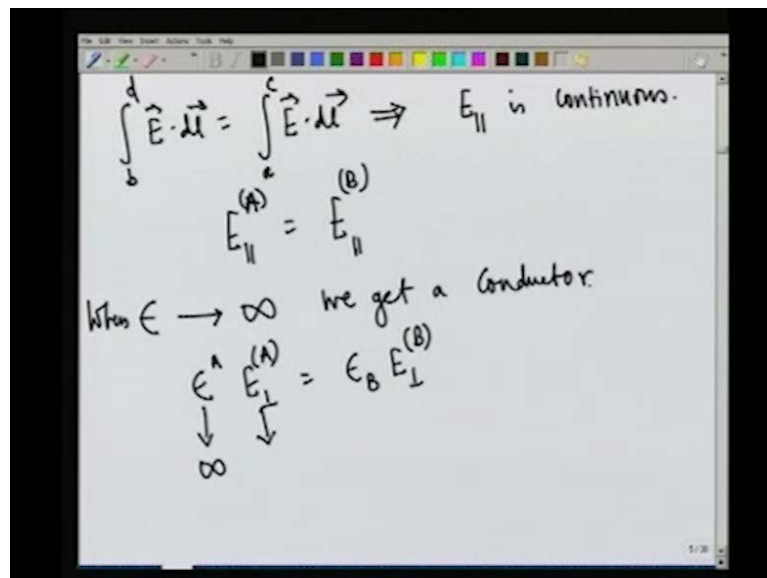 File Edit View Insert Actions Tools Help
∫_b^d E⃗·dl⃗ = ∫_a^c E⃗·dl⃗ ⇒ E_∥ is continuous.
E_∥^(A) = E_∥^(B)
When ϵ → ∞ we get a conductor.
ϵ^A E_⊥^(A) = ϵ_B E_⊥^(B)
↓ ↓
∞
5/30